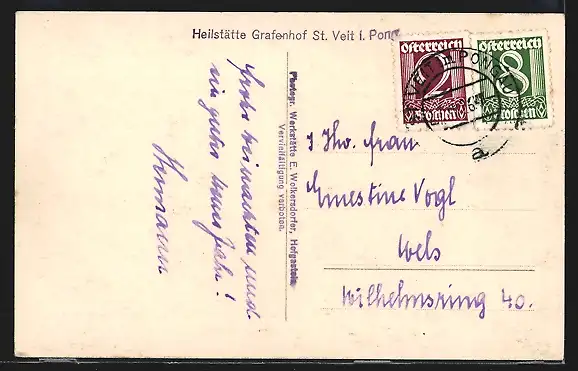 Heilstätte Grafenhof St. Veit i. Pong
Österreich
2
Groschen
Österreich
8
Groschen
ST. VEIT IM PONGAU
a
Frohe Weihnachten und
ein gutes neues Jahr!
Hermann
Photogr. Werkstätte E. Wolkersdorfer, Hofgastein
Vervielfältigung verboten.
Frau
Ernestine Vogl
Wels
Wilhelmsring 40.